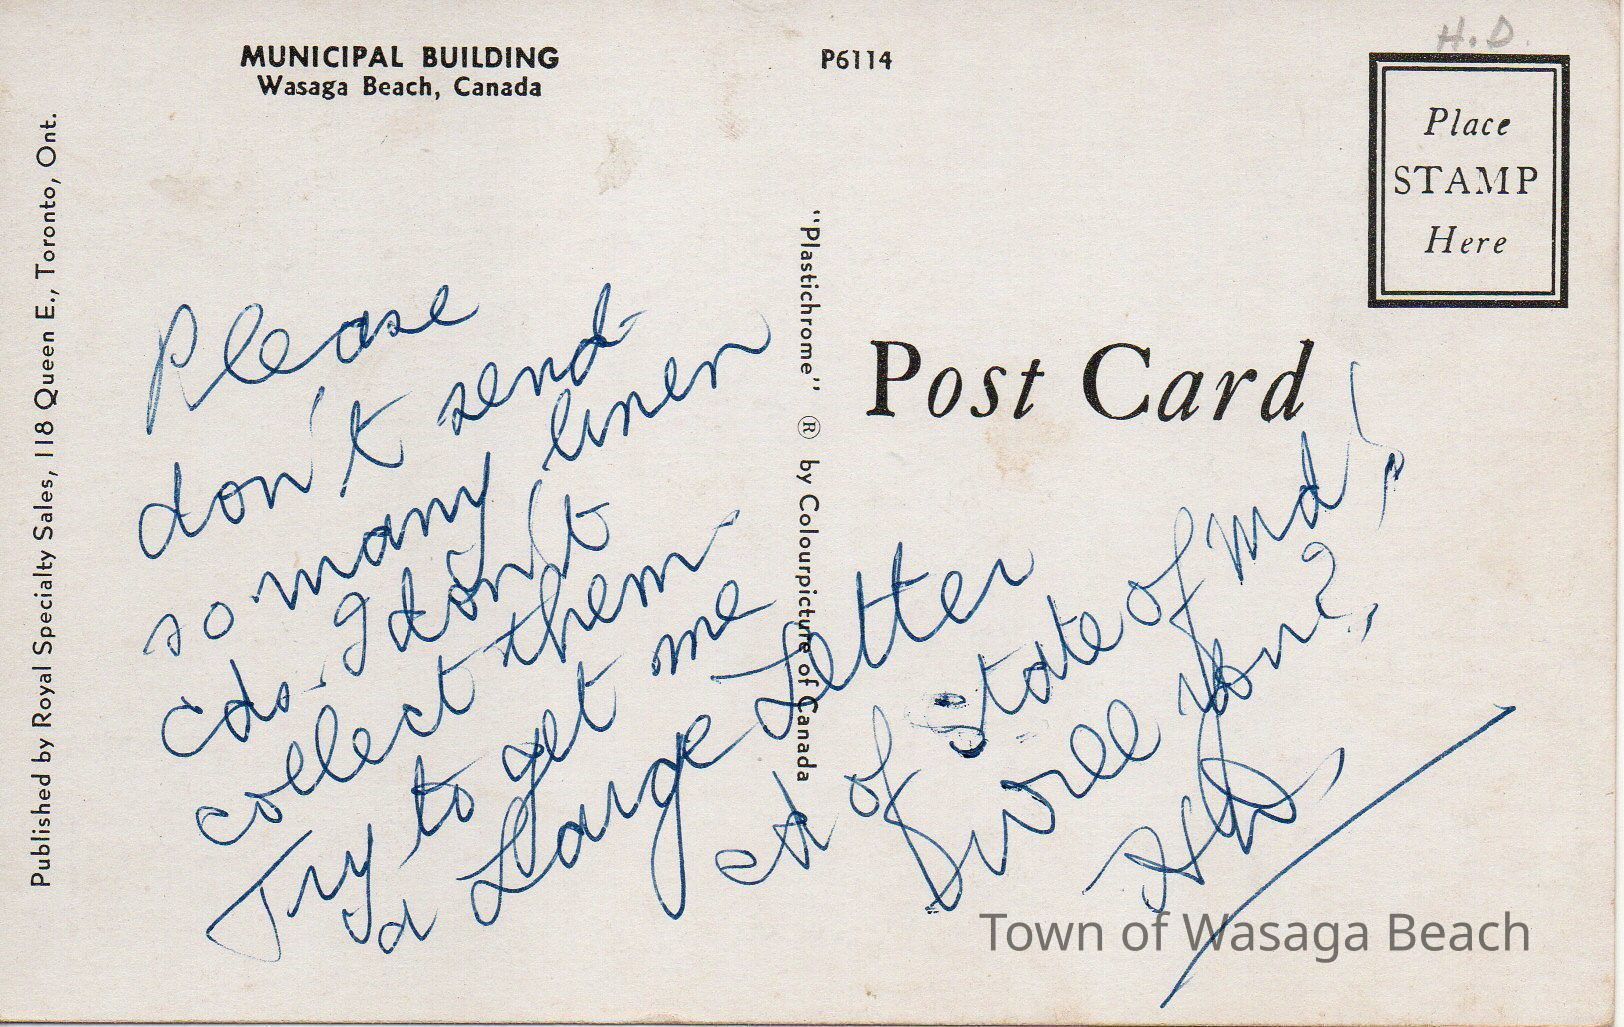 MUNICIPAL BUILDING
Wasaga Beach, Canada
P6114
H.D.
Place
STAMP
Here
Post Card
Published by Royal Specialty Sales, 118 Queen E., Toronto, Ont.
"Plastichrome" ® by Colourpicture of Canada
Please
don't send
so many linen
cds. I don't
collect them.
Try to get me
a Large Letter
cd of State of Md!
Will you?
Town of Wasaga Beach